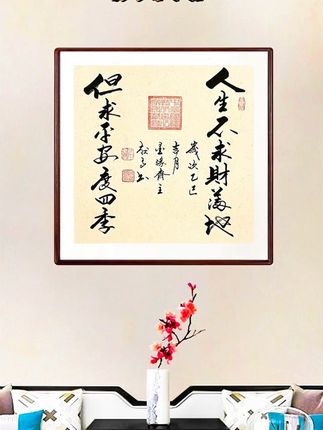 人生不求財滿地
但求平安度四季
歲次乙巳
吉月
墨緣齋主
书